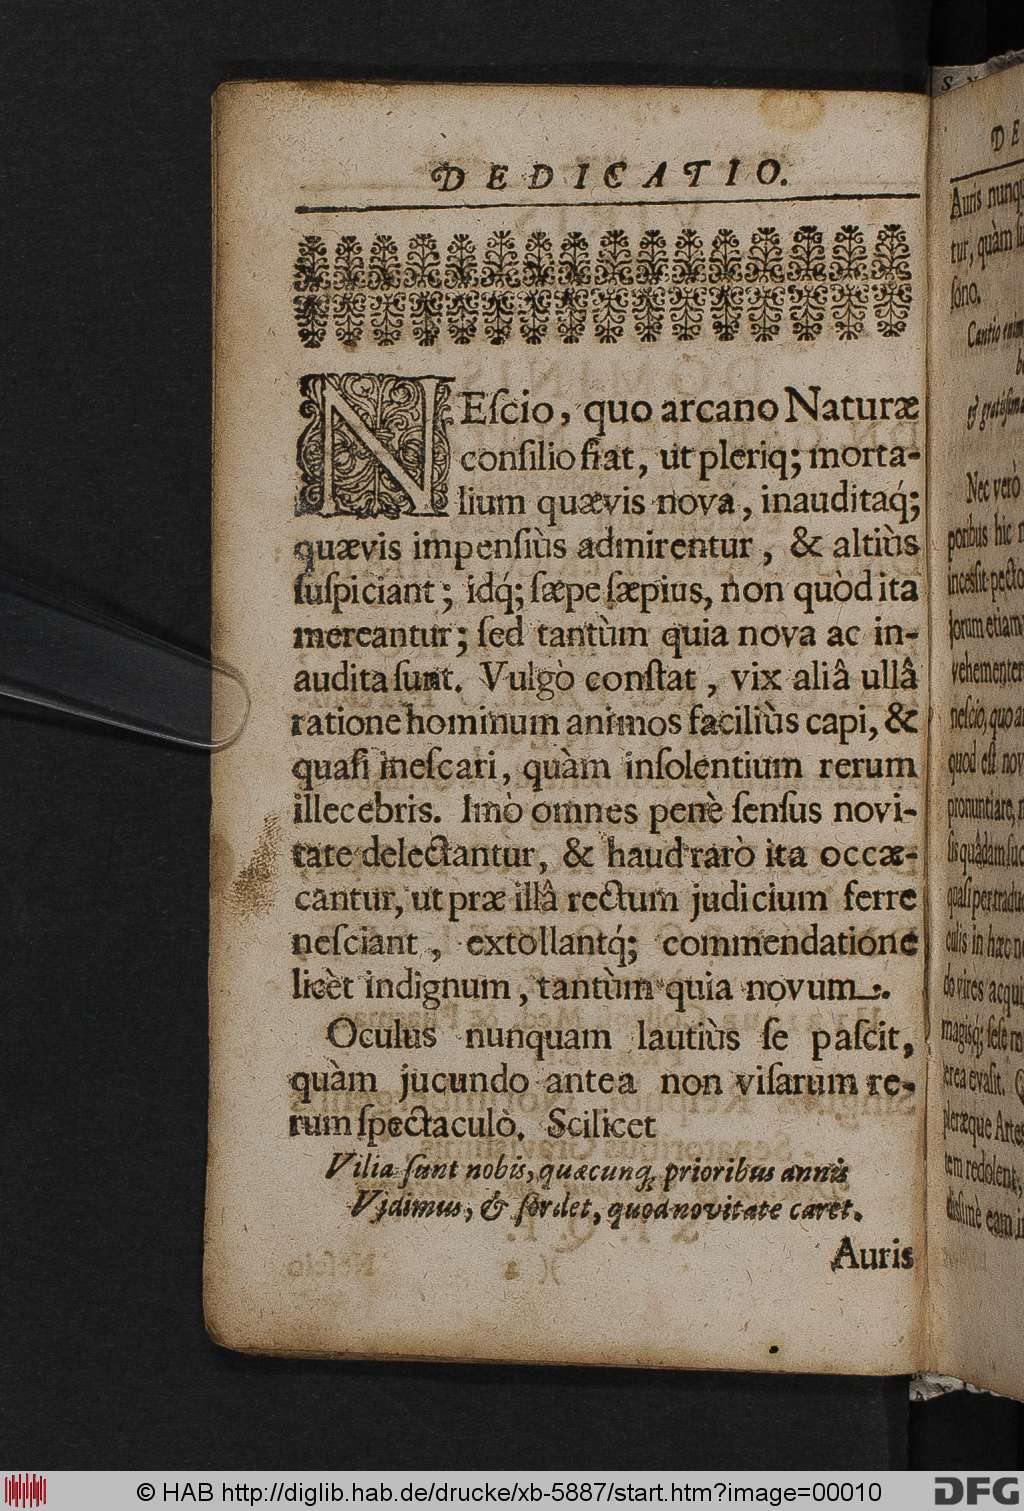 DEDICATIO.
NEſcio, quo arcano Naturæ
conſilio fiat, ut pleriq; morta-
lium quævis nova, inauditaq́;
quævis impenſiùs admirentur, & altiùs
ſuſpiciant; idq́; ſæpe ſæpius, non quòd ita
mereantur; ſed tantùm quia nova ac in-
audita ſunt. Vulgò conſtat, vix aliâ ullâ
ratione hominum animos faciliùs capi, &
quaſi ineſcari, quàm inſolentium rerum
illecebris. Imò omnes penè ſenſus novi-
tate delectantur, & haud rarò ita occæ-
cantur, ut præ illâ rectum judicium ferre
neſciant, extollantq́; commendatione
licèt indignum, tantùm quia novum.
Oculus nunquam lautiùs ſe paſcit,
quàm jucundo antea non viſarum re-
rum ſpectaculò. Scilicet
Vilia ſunt nobis, quæcunq; prioribus annis
Vidimus, & ſordet, quod novitate caret.
Auris
DE
Auris nunqu
tur, quàm ſu
ſono.
Cantio enim
& gratiſſima
Nec verò
poribus hic
inceſſit pecto
ſorum etiam
vehementer
neſcio, quo a
quod eſt nov
pronuntiare,
ſis quâdam ſuc
quaſi per tradu
culis in hæc
do vires acqui
magisq́; ſeſe
evaſit.
pleræque Artes
tem redolent,
eam
© HAB http://diglib.hab.de/drucke/xb-5887/start.htm?image=00010
DFG